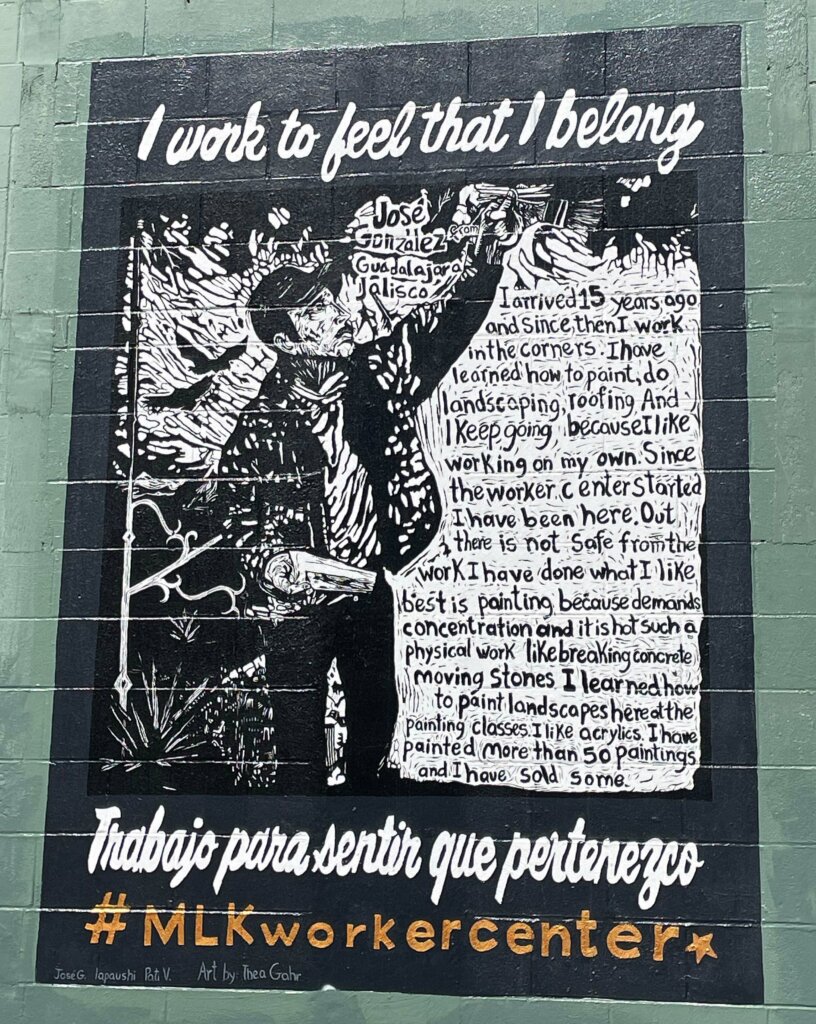 I work to feel that I belong
José
González from
Guadalajara
Jalisco
I arrived 15 years ago
and since then I work
in the corners. I have
learned how to paint, do
landscaping, roofing And
I keep going because I like
working on my own. Since
the worker center started
I have been here. Out
there is not safe from the
work I have done what I like
best is painting because demands
concentration and it is not such a
physical work like breaking concrete
moving stones I learned how
to paint landscapes here at the
painting classes. I like acrylics. I have
painted more than 50 paintings
and I have sold some.
Trabajo para sentir que pertenezco
#MLKworkercenter
Jose G. Iapaushi Pati V. Art by: Thea Gahr